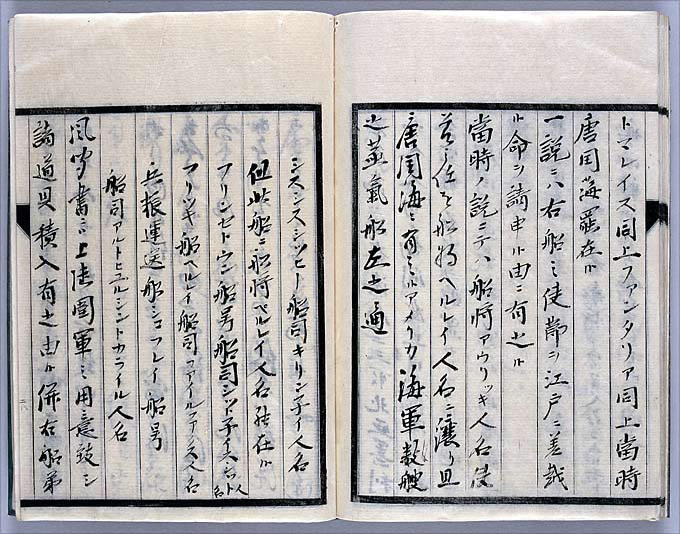 トマレイス同上ファンタリア同上當時
唐国海ニ罷在候
一説ニハ右船ニ使節ヲ江戸ニ差越
候命ヲ請申候由ニ有之候
當時ノ説ニテハ船将アウリッキ人名使
節ノ任ヲ船将ヘルレイ人名ニ譲リ且
唐国海ニ有之候アメリカ海軍数艘
之蒸氣船左之通
ミスシスシッヒー船司キリン子イ人名
但此船ニ船将ペルレイ人名罷在候
フリンセトウン船号船司シット子イスミット人名
フリッキ船ヘルレイ船司ファイルファクス人名
兵粮運送船シュフレイ船号
船司アルトヒュルシントカライル人名
風聞書ニ上陸囲軍ニ用意致シ
諸道具積入有之由候併右船第